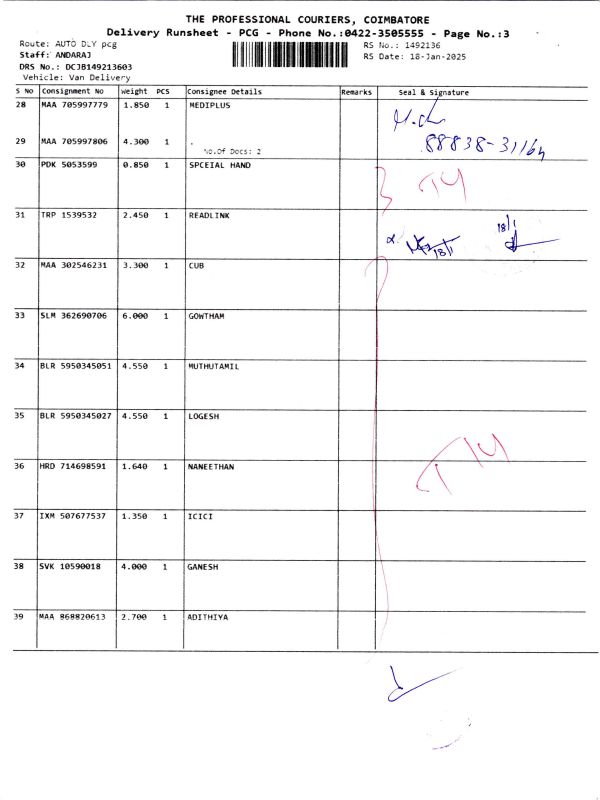 THE PROFESSIONAL COURIERS, COIMBATORE
Delivery Runsheet - PCG - Phone No.:0422-3505555 - Page No.:3
Route: AUTO DLY pcg RS No.: 1492136
Staff: ANDARAJ RS Date: 18-Jan-2025
DRS No.: DCJB149213603
Vehicle: Van Delivery
S No Consignment No Weight PCS Consignee Details Remarks Seal & Signature
28 MAA 705997779 1.850 1 MEDIPLUS
29 MAA 705997806 4.300 1 .
No.Of Docs: 2
30 PDK 5053599 0.850 1 SPCEIAL HAND
31 TRP 1539532 2.450 1 READLINK
18/1
18/1
32 MAA 302546231 3.300 1 CUB
33 SLM 362690706 6.000 1 GOWTHAM
34 BLR 5950345051 4.550 1 MUTHUTAMIL
35 BLR 5950345027 4.550 1 LOGESH
36 HRD 714698591 1.640 1 NANEETHAN
37 IXM 507677537 1.350 1 ICICI
38 SVK 10590018 4.000 1 GANESH
39 MAA 868820613 2.700 1 ADITHIYA